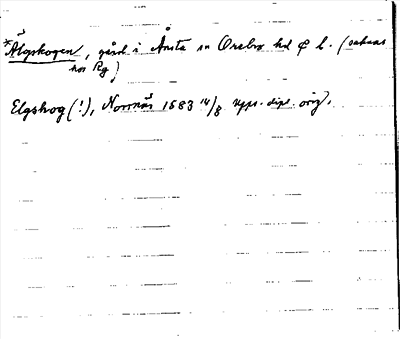 *Älgskogen, gård i Ånsta sn Örebro hd ⌀ l. (saknas
hos Rg)
Elgskog (!), Norrnäs 1583 14/8 Upps. dipl. orig.